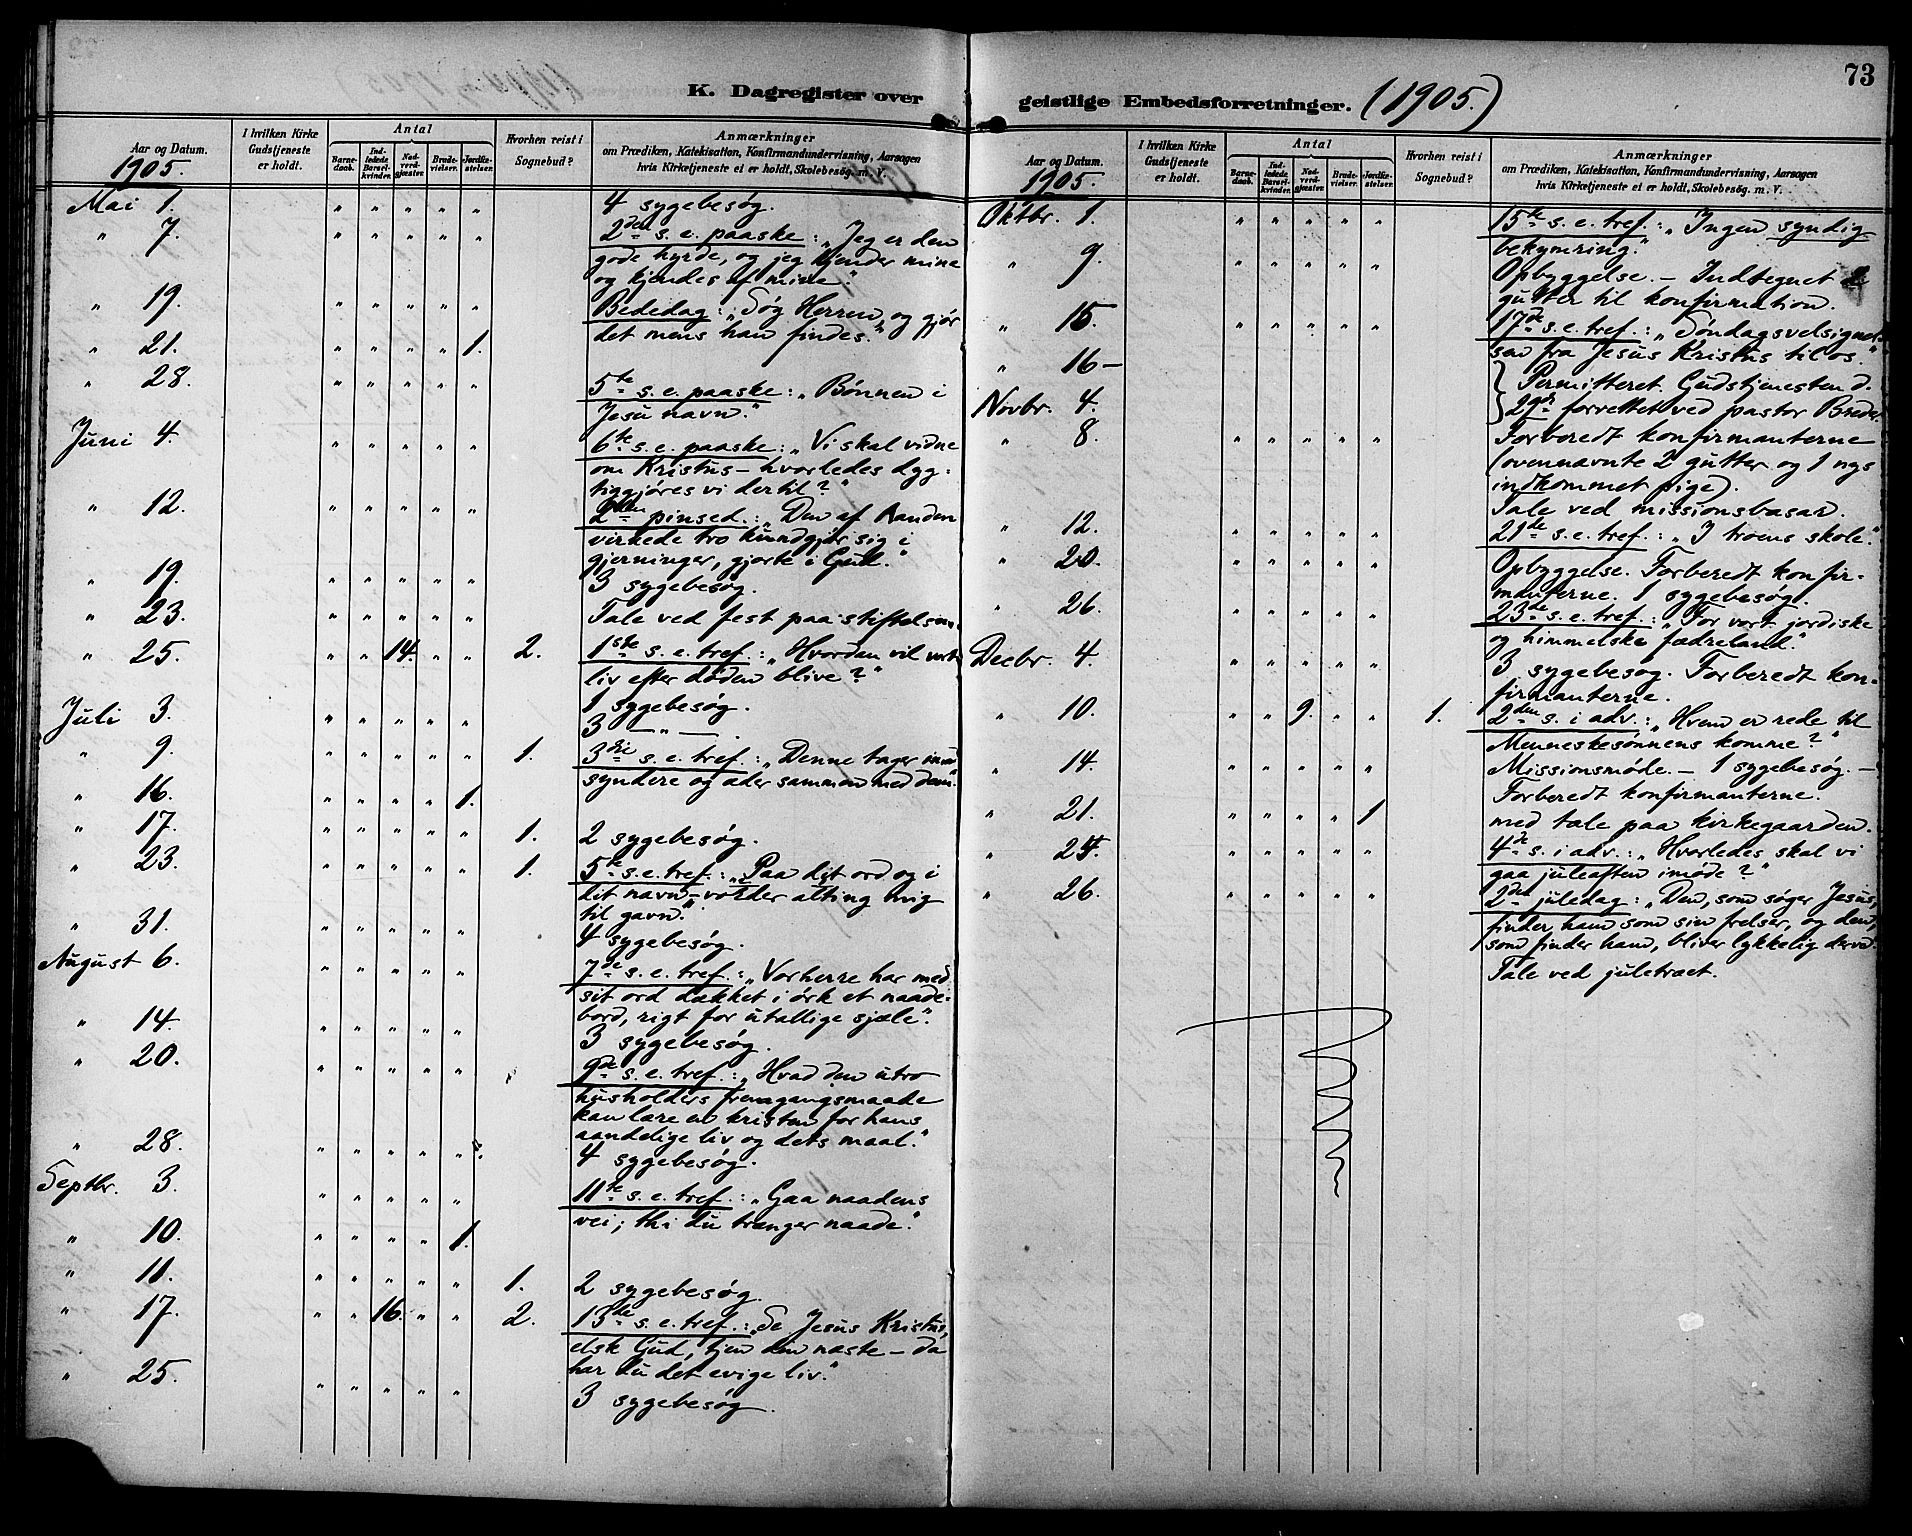 K. Dagregister over
Aar og Datum.
1905.
I hvilken Kirke Gudstjeneste er holdt.
Antal
Barnedaab.
Indledede Barselkvinder.
Nadverdgjæster.
Brudevielser.
Jordfæstelser.
Hvorhen reist i Sognebud?
Anmærkninger
om Prædiken, Katekisation, Konfirmandundervisning, Aarsagen
hvis Kirketjeneste ei er holdt, Skolebesøg m. V.
Mai 1. " " " " " 4 sygebesøg.
" 7. " " " " " 2den s. e. paaske: „Jeg er den
gode hyrde, og jeg kjender mine
og kjendes af mine."
" 19. " " " " " Bededag: „Søg Herren og gjør
det mens han findes."
" 21. " " " " 1.
" 28. " " " " " 5te s. e. paaske: „Bønnen i
Jesu navn."
Juni 4. " " " " " 6te s. e. paaske: „Vi skal vidne
om Kristus – hvorledes dyg-
tiggjøres vi dertil?"
" 12. " " " " " 2den pinsed.: „Den af Aanden
virkede tro kundgjør sig i
gjerninger, gjorte i Gud."
" 19. " " " " " 3 sygebesøg.
" 23. " " " " " Tale ved fest paa stiftelsen.
" 25. " " 14. " " 2. 1ste s. e. tref.: „Hvordan vil vort
liv efter døden blive?"
1 sygebesøg.
Juli 3. " " " " " 3 — " — .
" 9. " " " " " 1. 3die s. e. tref.: „Denne tager imod
syndere og æder sammen med dem."
" 16. " " " " 1.
" 17. " " " " " 1. 2 sygebesøg.
" 23. " " " " " 1. 5te s. e. tref.: „Paa dit ord og i
dit navn – vorder alting mig
til gavn."
" 31. " " " " " 4 sygebesøg.
August 6. " " " " " 7de s. e. tref.: „Vorherre har med
sit ord dækket i ørk et naade-
bord, rigt for utallige sjæle".
" 14. " " " " " 3 sygebesøg.
" 20. " " " " " 9de s. e. tref.: „Hvad den utro
husholders fremgangsmaade
kan lære en kristen for hans
aandelige liv og dets maal."
" 28. " " " " " 4 sygebesøg.
Septbr. 3. " " " " " 11te s. e. tref.: „Gaa naadens
vei; thi du trænger naade."
" 10. " " " " 1.
" 11. " " " " " 1. 2 sygebesøg.
" 17. " " 16. " " 2. 13de s. e. tref.: „Se Jesus Kristus,
elsk Gud, tjen din næste – da
har du det evige liv."
" 25. " " " " " 3 sygebesøg.
geistlige Embedsforretninger. (1905.)
73
Aar og Datum.
1905.
I hvilken Kirke Gudstjeneste er holdt.
Antal
Barnedaab.
Indledede Barselkvinder.
Nadverdgjæster.
Brudevielser.
Jordfæstelser.
Hvorhen reist i Sognebud?
Anmærkninger
om Prædiken, Katekisation, Konfirmandundervisning, Aarsagen
hvis Kirketjeneste et er holdt, Skolebesøg. m. V.
Oktbr. 1. " " " " " 15te s. e. tref.: „Ingen syndig
bekymring."
" 9. " " " " " Opbyggelse. – Indtegnet 2
gutter til konfirmation.
" 15. " " " " " 17de s. e. tref.: „Søndagsvelsignel-
sen fra Jesus Kristus til os."
" 16 – Permitteret. Gudstjenesten d.
Novbr. 4. forrettet ved pastor
" 8. " " " " " Forberedt konfirmanterne
(ovennævnte 2 gutter og 1 nys
indkommet pige).
Tale ved missionsbasar.
" 12. " " " " " 21de s. e. tref.: „I troens skole."
" 20. " " " " " Opbyggelse. Forberedt konfir-
manterne. 1 sygebesøg.
" 26. " " " " " 23de s. e. tref.: „For vort jordiske
og himmelske fædreland."
Decbr. 4. " " " " " 3 sygebesøg. Forberedt kon-
firmanterne.
" 10. " " 9. " " 1. 2den s. i adv.: „Hvem er rede til
Menneskesønnens komme?"
" 14. " " " " " Missionsmøde. – 1 sygebesøg. –
Forberedt konfirmanterne.
" 21. " " " " 1 med tale paa kirkegaarden.
" 24. " " " " " 4de s. i adv.: „Hvorledes skal vi
gaa juleaften imøde?"
" 26. " " " " " 2den juledag: „Den, som søger Jesus,
finder ham som sin frelser, og den,
som finder ham, bliver lykkelig derved.
Tale ved juletræet.